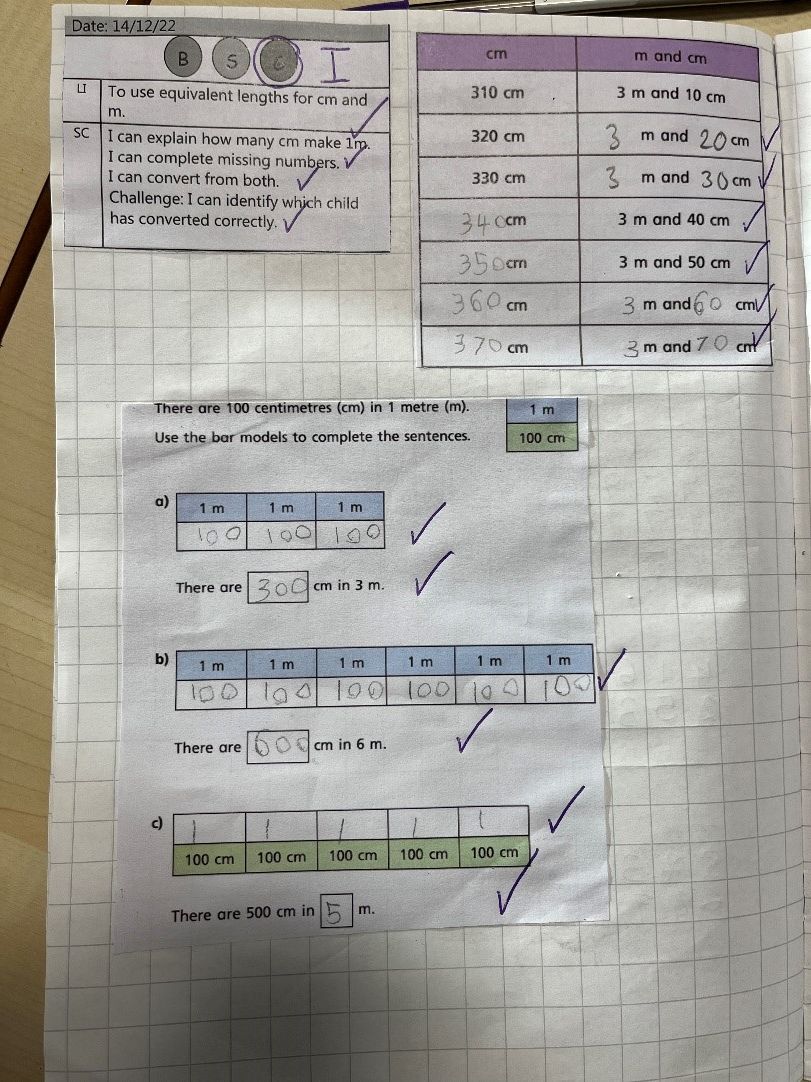 Date: 14/12/22
B S C I
LI To use equivalent lengths for cm and
m.
SC I can explain how many cm make 1m.
I can complete missing numbers.
I can convert from both.
Challenge: I can identify which child
has converted correctly.
cm m and cm
310 cm 3 m and 10 cm
320 cm 3 m and 20 cm
330 cm 3 m and 30 cm
340 cm 3 m and 40 cm
350 cm 3 m and 50 cm
360 cm 3 m and 60 cm
370 cm 3 m and 70 cm
There are 100 centimetres (cm) in 1 metre (m).
Use the bar models to complete the sentences.
1 m
100 cm
a) 1 m 1 m 1 m
100 100 100
There are 300 cm in 3 m.
b) 1 m 1 m 1 m 1 m 1 m 1 m
100 100 100 100 100 100
There are 600 cm in 6 m.
c) 1 1 1 1 1
100 cm 100 cm 100 cm 100 cm 100 cm
There are 500 cm in 5 m.